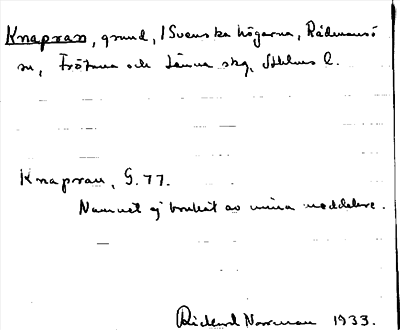 Knapran, grund, i Svenska högarna, Rådmansö
sn, Frötuna och Länna skg, Sthlms l.
Knapran, G. 77.
Namnet ej brukat av mina meddelare.
Rickard Norrman 1933.